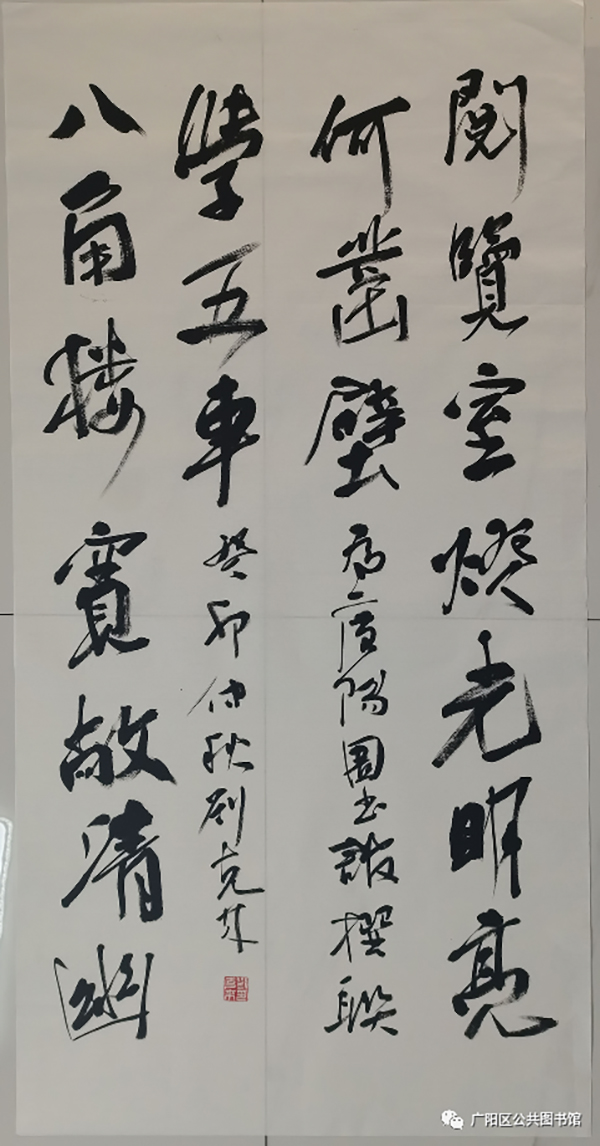 閱覽室燈光明亮
何鑿壁 为廣陽圖书館撰联
八角楼寬敞清幽
學五車 癸卯仲秋刘克林
广阳区公共图书馆